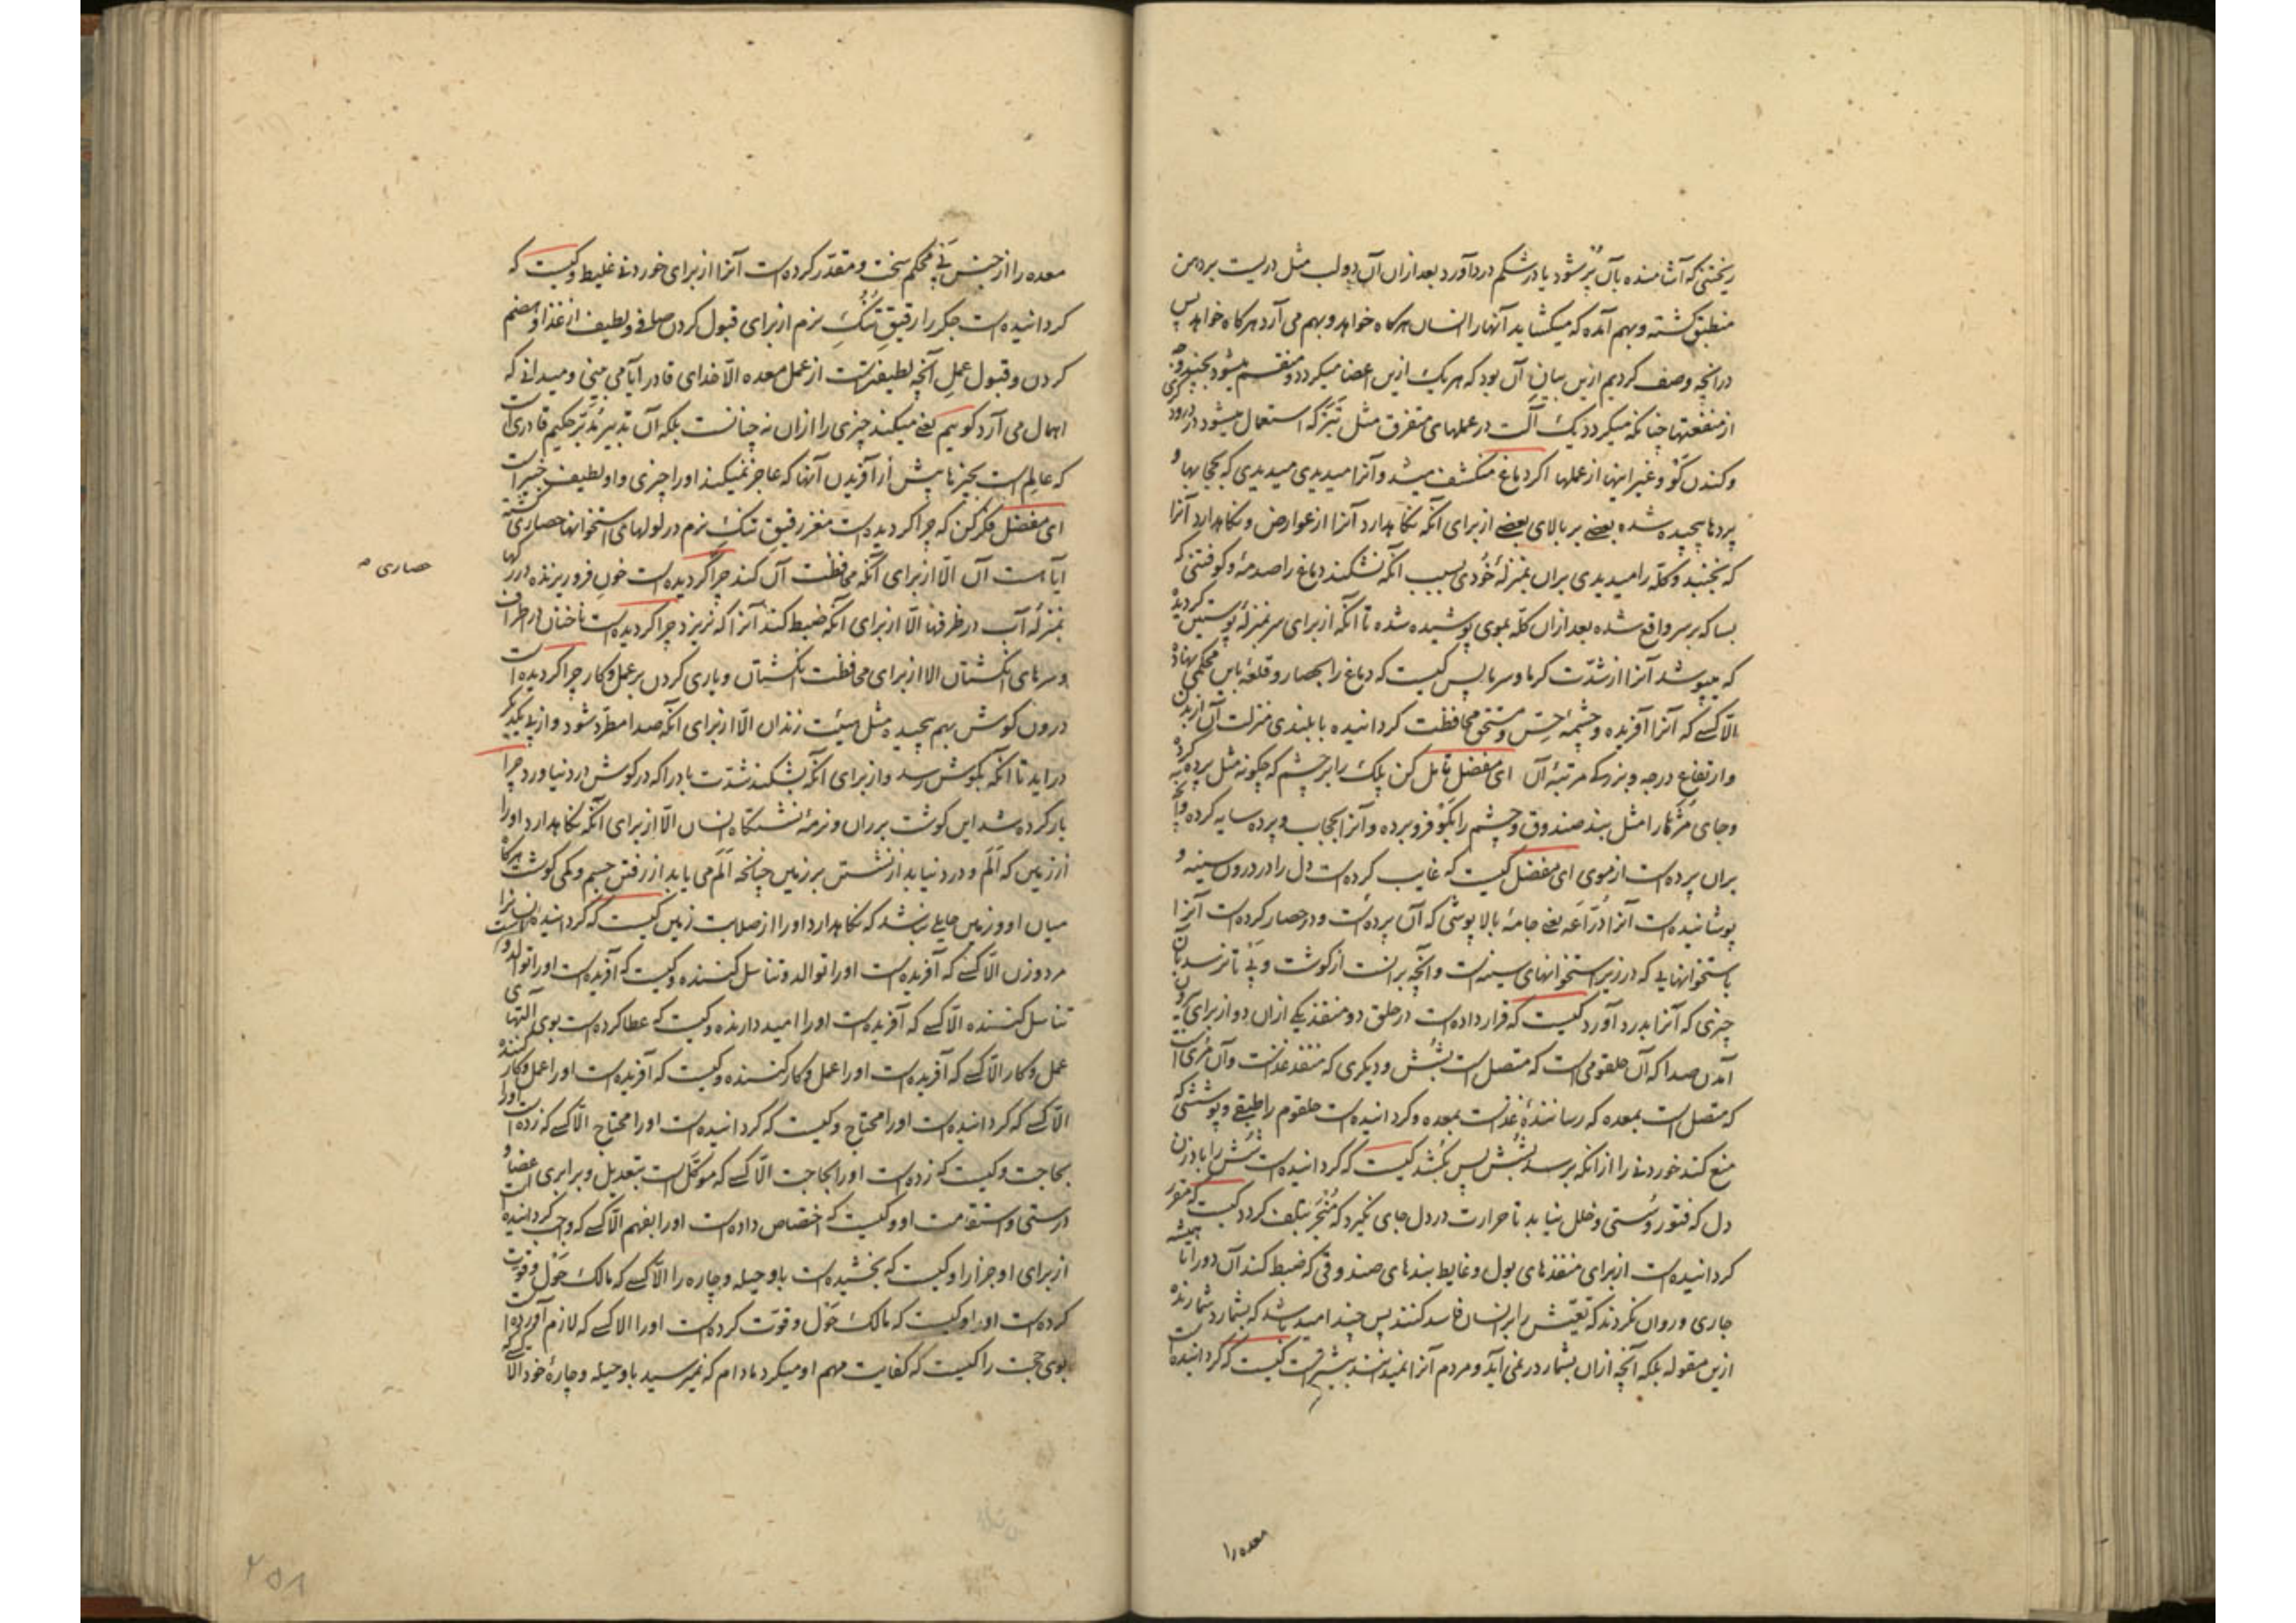 ریختنی که آشامنده بآن پر شود یا در شکم درد آورد بعد ازان آن دولب مثل دریست بر دهن
منطبق کشته وبهم آمده که میکشاید آنها را انسان هرکاه خواهد وبهم می آرد هرکاه خواهد پس
درانچه وصف کردیم ازین بیان آن بود که هریک ازین اعضا میکردد ومنقسم میشود بچندی
از منفعتها چنانکه میکردد یک آلت در عملهای متفرق مثل تبر که استعمال میشود در درودکری
وکندن کو وغیر اینها از عملها اکر دماغ منکشف میشد وآنرا میدیدی میدیدی که بحجابها و
پردها پیچیده شده بعضی بر بالای بعضی از برای آنکه نکاهدارد آنرا از عوارض ونکاهدارد آنرا
که نجنبد وکله را میدیدی بران بمنزلهٔ خودی بسبب آنکه نشکند دماغ را صدمهٔ وکوفتنی که
بسا که بر سر واقع شده بعد ازان کله بموی پوشیده شده تا آنکه از برای سر بمنزلهٔ پوستین کردیده
که بپوشد آنرا از شدت کرما وسرما پس کیست که دماغ را بحصار وقلعهٔ باین محکمی نهاده
الا کسی که آنرا آفریده وچشمهٔ حس ومستحق محافظت کردانیده با بلندی منزلت آن از بدن
وارتفاع درجه وبزرکی مرتبهٔ آن ای مفضل تامل کن پلک را بر چشم که چکونه مثل پرده کرده
وجای مژه‌ها را مثل بند صندوق وچشم را بکو فرو برده وآنرا بحجاب وپرده سایه کرده وآنچه
بران پرده است از موی ای مفضل کیست که غایب کرده است دل را در درون سینه و
پوشانیده است آنرا دراعه یعنی جامهٔ بالاپوشی که آن پرده است ودر حصار کرده است آنرا
باستخوانهایی که در زیر استخوانهای سینه است وآنچه برانست از کوشت وپی تا نرسد بآن
چیزی که آنرا بدرد آورد کیست که قرار داده است در حلق دو منفذ یکی ازان دو از برای بیرون
آمدن صدا که آن حلقومی است که متصل است بشش ودیکری که منفذ غذاست وآن مری است
که متصل است بمعده که رسانندهٔ غذاست بمعده وکردانیده است حلقوم را طبقی وپوششی که
منع کند خوردنی را ازانکه برسد بشش پس بکشد کیست که کردانیده است شش را بادزن
دل که فتور وسستی وخلل نیابد تا حرارت در دل جای نکیرد که منجر بتلف کردد کیست که مقرر
کردانیده است از برای منفذهای بول وغایط بندهای صندوقی که ضبط کند آن دو را تا همیشه
جاری وروان نکردند که تعیش را بر انسان فاسد کنند پس چند امید باشد که بشمارد شمارنده
ازین مقوله بلکه آنچه ازان بشمار در نمی آید ومردم آنرا نمیدانند بیشتر است کیست که کردانیده است
معده را
معده را از جنس پی محکم سخت ومقدر کرده است آنرا از برای خوردنی غلیظ وکیست که
کردانیده است جکر را رقیق تنک نرم از برای قبول کردن صافی ولطیف از غذا وهضم
کردن وقبول عمل آنچه لطیفتر است از عمل معده الا خدای قادر آیا می بینی ومیدانی که
اهمال می آرد کوییم یعنی میکند چیزی را ازان نه چنانست بلکه آن تدبیر مدبر حکیم قادری است
که عالم است بچیزها پیش از آفریدن آنها که عاجز نمیکند او را چیزی واو لطیف خبیر است
ای مفضل فکر کن که چرا کردیده است مغز رقیق تنک نرم در لولهای استخوانها حصاری کشته
آیا هست آن الا از برای آنکه محافظت آن کند چرا کردیده است خون فرو ریزنده در رکها
بمنزلهٔ آب در ظرفها الا از برای آنکه ضبط کند آنرا که نریزد چرا کردیده است ناخنان در اطراف
وسرهای انکشتان الا از برای محافظت انکشتان ویاری کردن بر عمل وکار چرا کردیده است
درون کوش بهم پیچیده مثل هیئت زندان الا از برای آنکه صدا مطرد شود واز پی یکدیکر
در اید تا آنکه بکوش رسد واز برای آنکه بشکند شدت باد را که در کوش درد نیاورد چرا
بار کرده شد این کوشت بر ران ونرمهٔ نشستکاه انسان الا از برای آنکه نکاهدارد او را
از زمین که الم ودرد نیابد از نشستن بر زمین چنانچه الم می یابد از رفتن جسم وکمی کوشت هرکاه
میان او وزمین حایلی نباشد که نکاهدارد او را از صلابت زمین کیست که کردانیده است انسانرا
مرد وزن الا کسی که آفریده است او را توالد وتناسل کننده وکیست که آفریده است او را توالد و
تناسل کننده الا کسی که آفریده است او را امید دارنده وکیست که عطا کرده است بوی آلتهای
عمل وکار الا کسی که آفریده است او را عمل وکار کننده وکیست که آفریده است او را عمل وکار کننده
الا کسی که کردانیده است او را محتاج وکیست که کردانیده است او را محتاج الا کسی که زده است او را
بحاجت وکیست که زده است او را بحاجت الا کسی که موکل است بتعدیل وبرابری اعضا و
درستی واستقامت او وکیست که اختصاص داده است او را بفهم الا کسی که واجب کردانیده است
از برای او جزا را وکیست که بخشیده است باو حیله وچاره را الا کسی که مالک حول وقوت
کرده است او را وکیست که مالک حول وقوت کرده است او را الا کسی که لازم آورده است
بوی حجت را کیست که کفایت مهم او میکرد مادام که نمیرسید باو حیله وچارهٔ خود الا کسی که
حصاری
۲۵۸